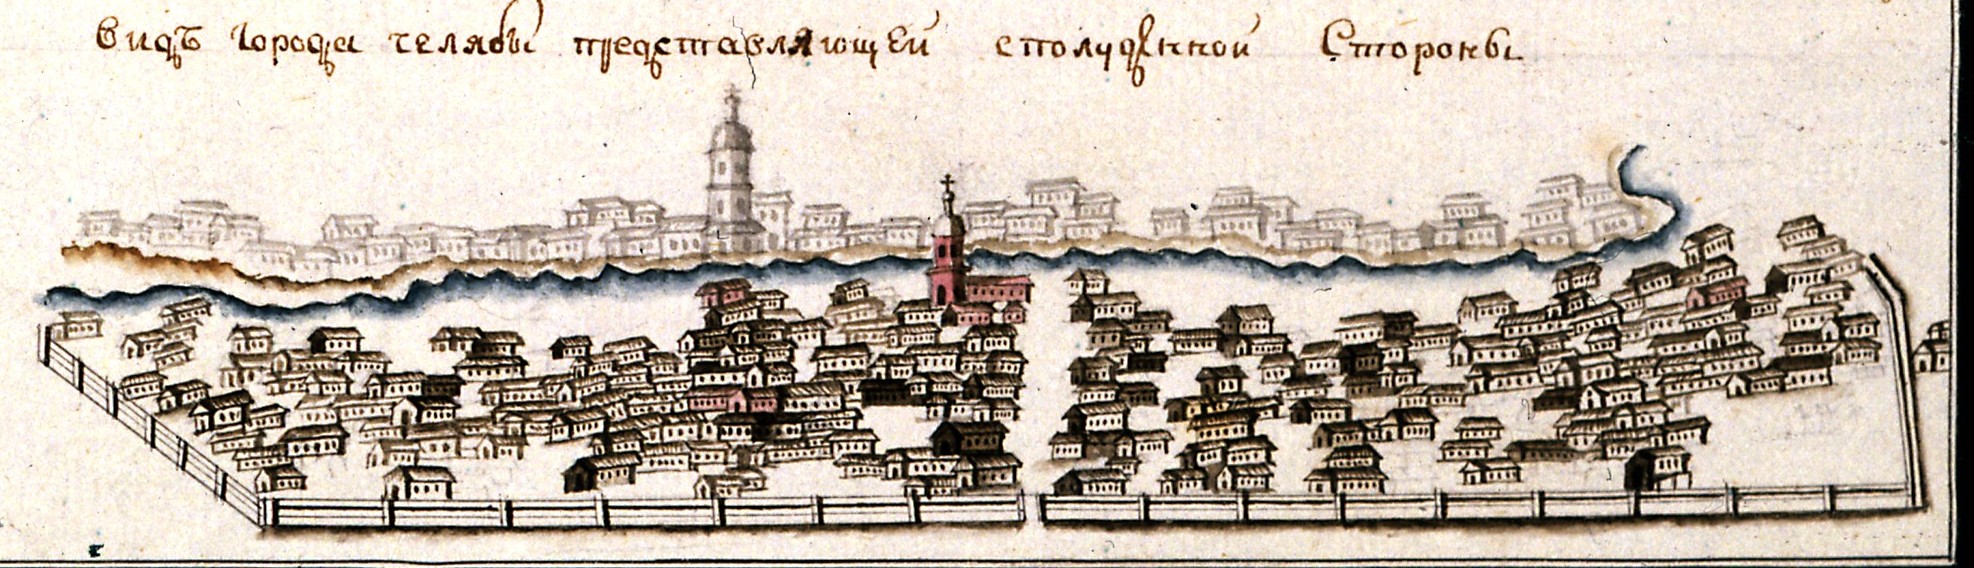 Видъ города челябы представляющей сполуденной Стороны